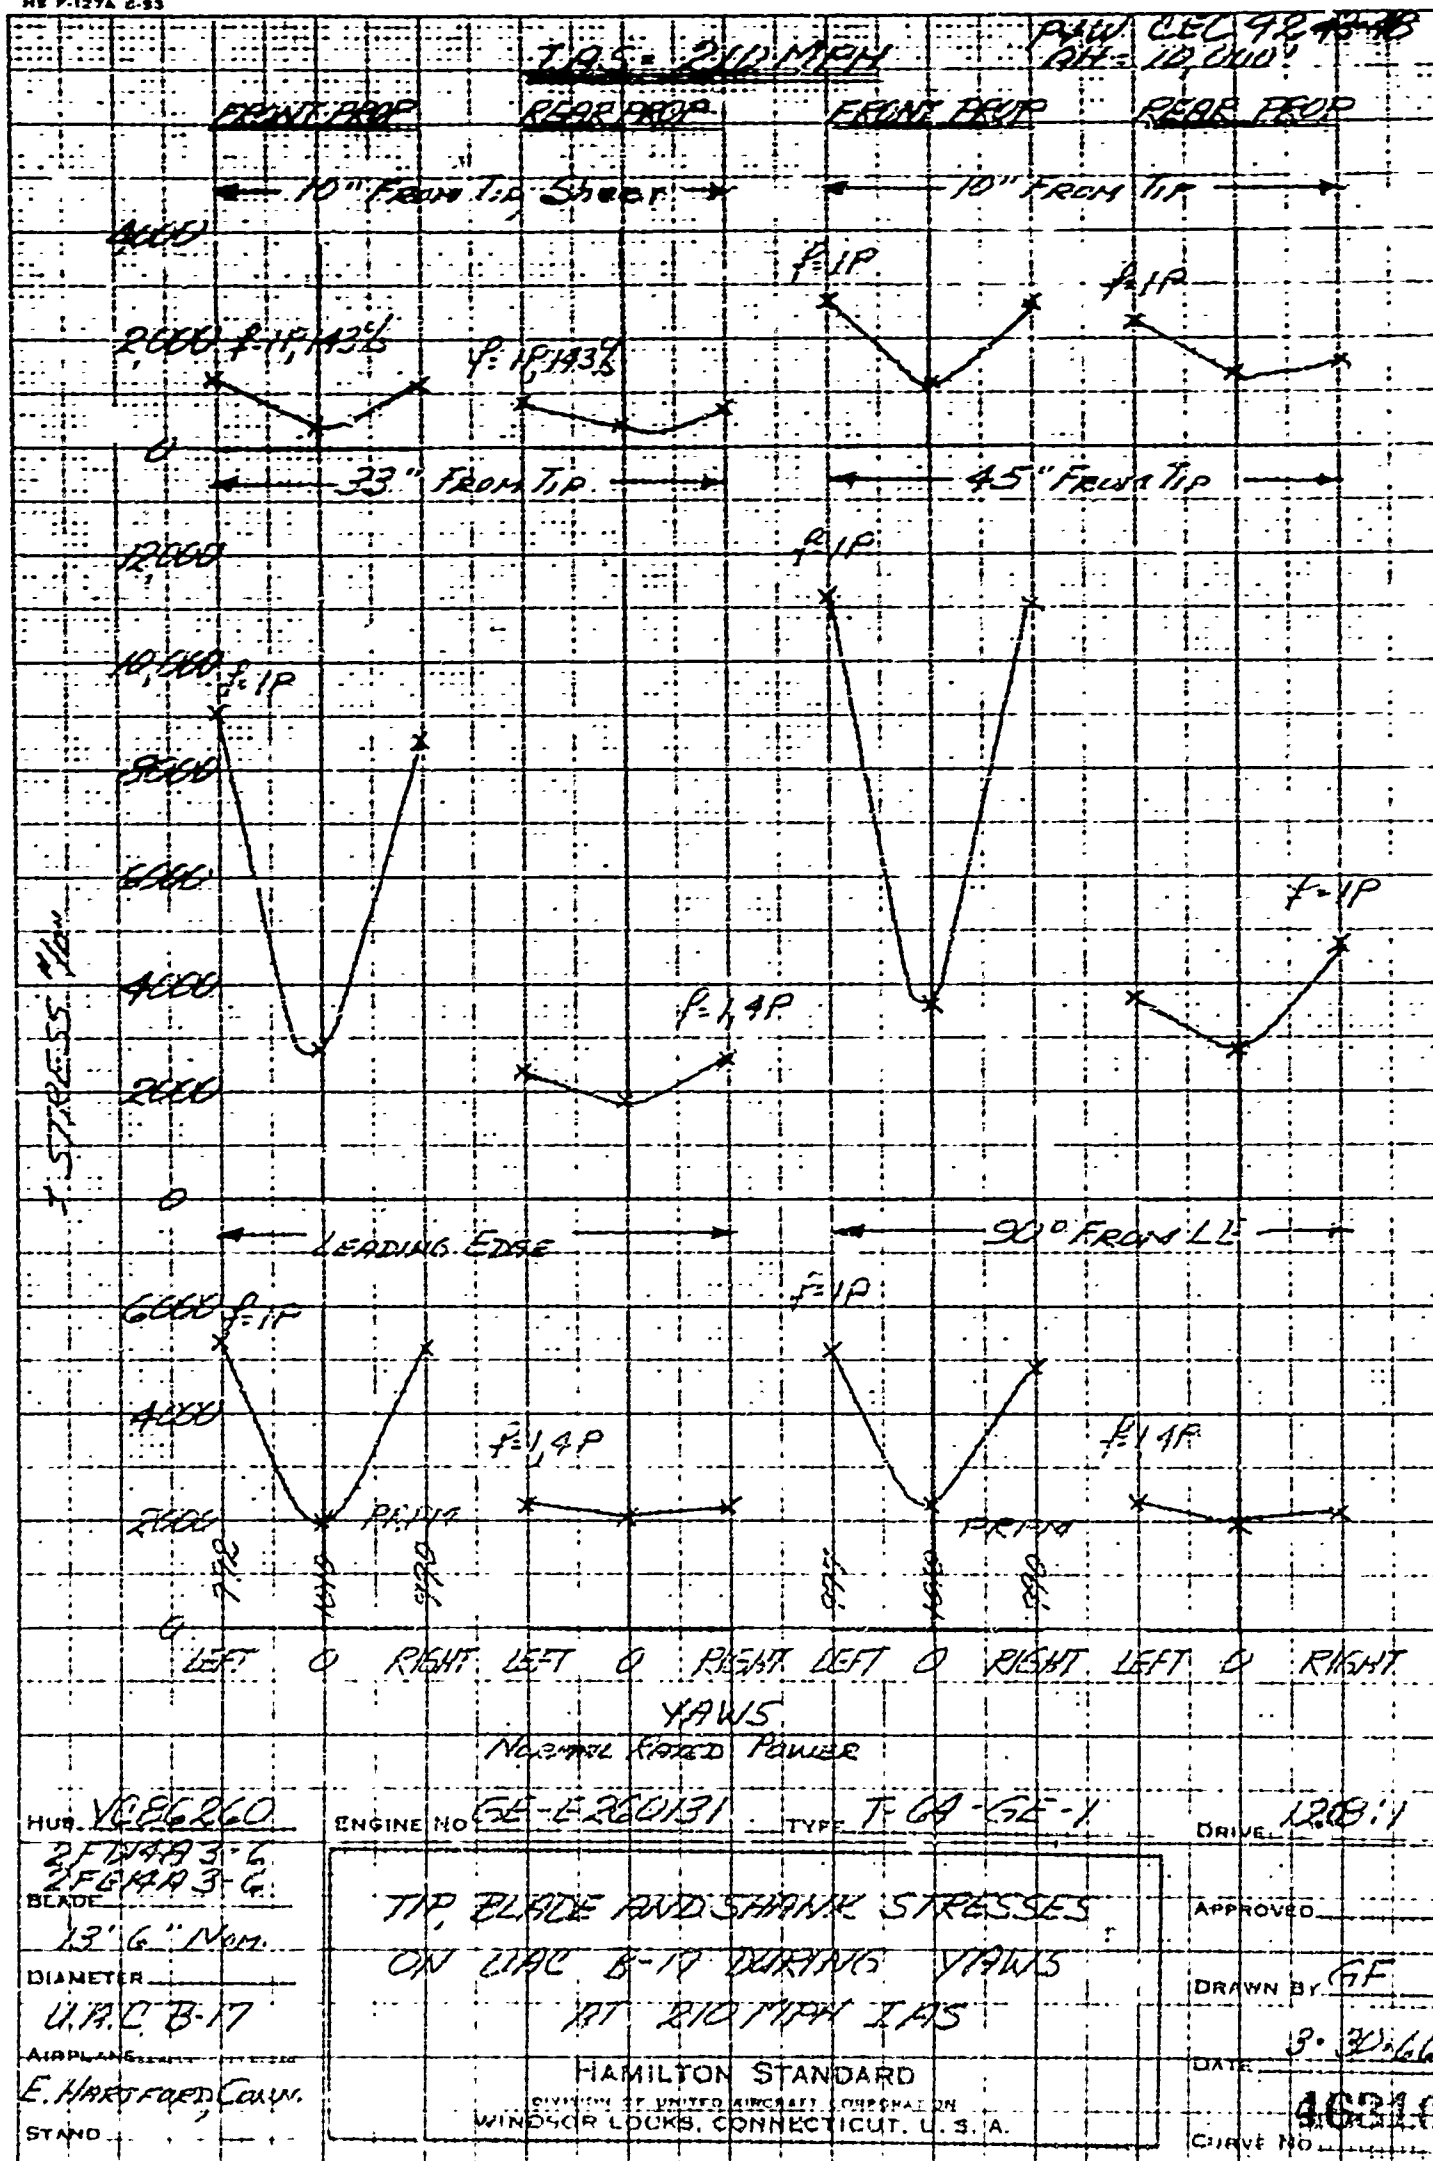 HS F-127A 2-53
I.A.S. = 210 MPH
RAW CEC 92
Alt = 10,000'
FRONT PROP REAR PROP FRONT PROP REAR PROP
10" FROM TIP Shear 10" FROM TIP
4000
f=1P f=1P
2000 f=1P, 143 f=1P, 143
0
33" FROM TIP 45" FROM TIP
12,000 f=1P
10,000 f=1P
8000
6000
f=1P
4000
f=1,4P
2000
± STRESS #/□"
0
LEADING EDGE 90° FROM LE
6000 f=1P f=1P
4000
f=1,4P f=1,4P
2000 PRPM PRPM
0
LEFT 0 RIGHT LEFT 0 RIGHT LEFT 0 RIGHT LEFT 0 RIGHT
YAWS
NORMAL RATED POWER
HUB VC86260 ENGINE NO GE-E260131 TYPE T-64-GE-1 DRIVE
BLADE
13' 6" Nom.
DIAMETER
U.A.C. B-17
AIRPLANE
E. HARTFORD, CONN.
STAND
TIP, BLADE AND SHANK STRESSES
ON UAC B-17 DURING YAWS
AT 210 MPH IAS
HAMILTON STANDARD
DIVISION OF UNITED AIRCRAFT CORPORATION
WINDSOR LOCKS, CONNECTICUT, U.S.A.
APPROVED
DRAWN BY GF
DATE 3·30·66
CURVE NO